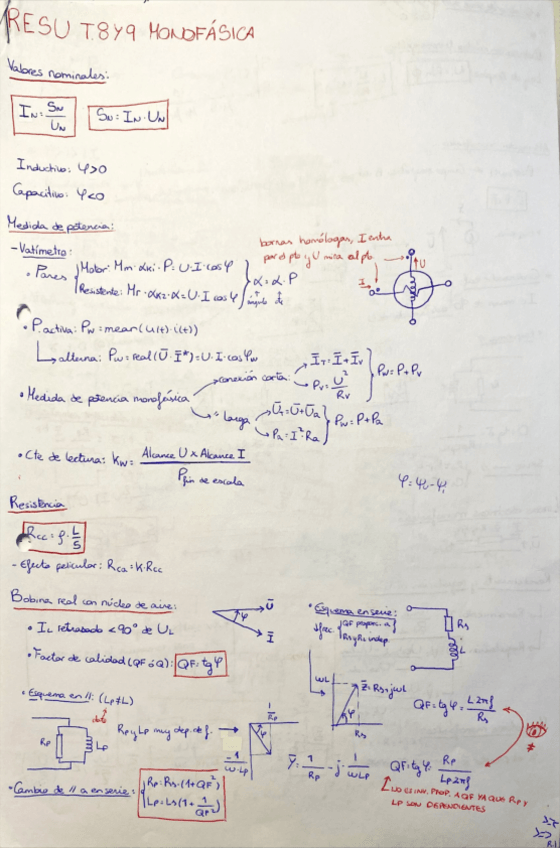 RESU T.8 Y 9 MONOFÁSICA
Valores nominales:
I_N = S_N / U_N
S_N = I_N · U_N
Inductivo: φ>0
Capacitivo: φ<0
Medida de potencia:
- Vatímetro:
• Pares
Motor: Mm · αK1 · P: U·I·cosφ
Resistente: Mr · αK2·α = U·I cosφ
α = α · P
ángulo
bornas homólogas, I entra
por el pto y U mira al pto
I
U
• P. activa: Pw = mean(u(t)·i(t))
alterna: Pw = real(Ū·Ī*) = U·I·cosφw
• Medida de potencia monofásica
conexión corta:
Ī_T = Ī + Ī_V
P_V = U²/R_V
Pw = P + P_V
" larga
Ū_T = Ū + Ū_a
P_a = I²·R_a
Pw = P + P_a
• Cte de lectura: Kw = Alcance U x Alcance I / P fin de escala
Resistencia
Rcc = ρ · L/S
- Efecto pelicular: Rca = K·Rcc
Bobina real con núcleo de aire:
• I_L retrasado <90° de U_L
• Factor de calidad (QF ó Q): QF = tgφ
φ
Ū
Ī
• Esquema en serie:
QF propor. a
Rs y Ls indep.
Rs
L
ωL
Z̄ = Rs + jωL
φ
Rs
QF = tgφ = L2πf / Rs
≠
• Esquema en //: (Lp ≠ L)
dato
Rp
Lp
Rp y Lp muy dep. de f.
1/Rp
φ
-1/ω·Lp
Ȳ = 1/Rp - j · 1/ωLp
QF = tgφ: Rp / Lp2πf
NO ES INV. PROP. A QF YA QUE Rp Y
LP SON DEPENDIENTES
• Cambio de // a en serie:
Rp = Rs·(1+QF²)
Lp = Ls(1+ 1/QF²)